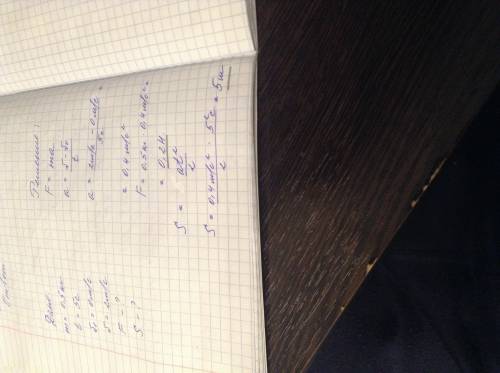 Ответ
Дано
m = 0.5 кг
t = 5с
v₀ = 0 м/с
v = 2 м/с
F - ?
S - ?
Решение:
F = ma
a = (v - v₀)/t
a = (2 м/с - 0 м/с)/5с =
= 0.4 м/с²
F = 0.5 кг · 0.4 м/с² =
= 0.2 Н
S = at²/2
S = 0.4 м/с² · 5²с/2 = 5 м